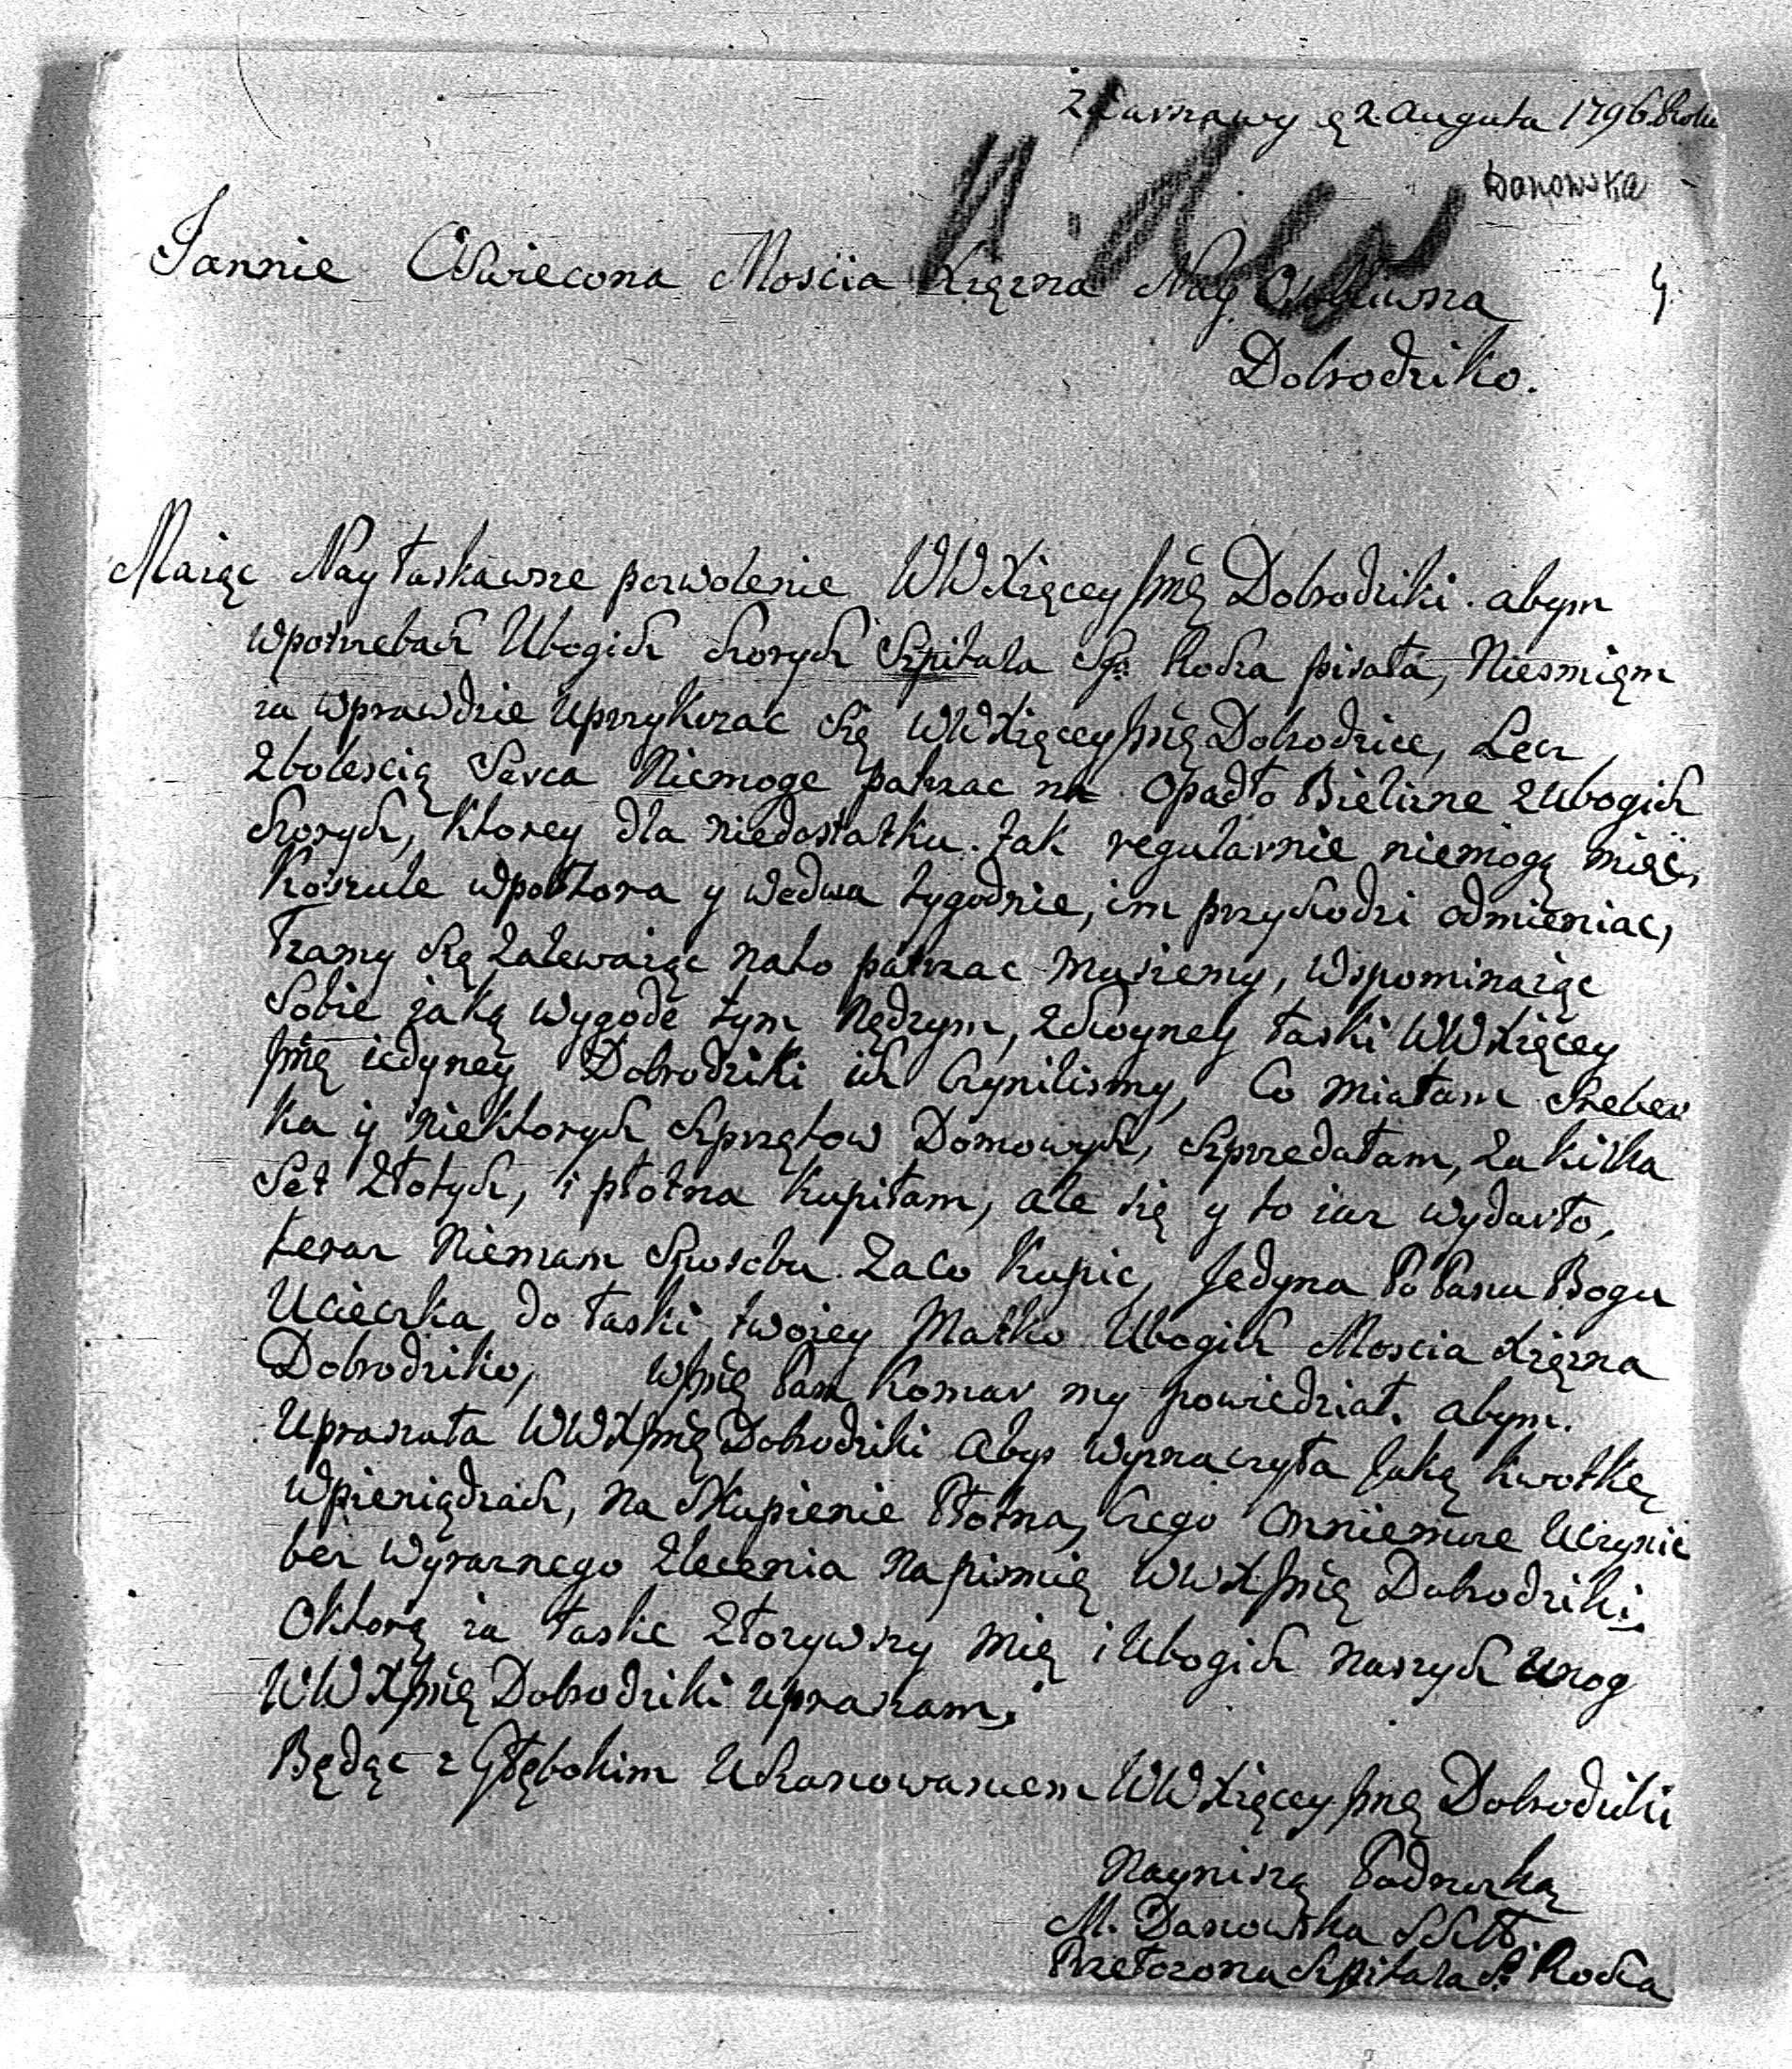 z Warszawy d 2 Augusta 1796 Roku
Danowska
4.
Jasnie Oswiecona Mościa Xięzna Nay Osobliwsza
Dobrodziko.
Maiąc Nay łaskawsze pozwolenie WW Xięcey Jmę Dobrodziki. abym
wpotrzebach Ubogich chorych Szpitala Sgo Rocha pisała, Niesmięm
za wprawdzie uprzykrzac się WW Xięcey Jmę Dobrodzice, Lecz
zbolescią Serca Niemoge patrzac na Opadło Bielizne z Ubogich
chorych, ktorey dla niedostatku. tak regularnie niemogą mięć,
Koszule wpołtora y wedwa tygodnie, im przychodzi odmieniac,
Łzamy się zalewaiąc nato patrzac musiemy, wspominaiąc
Sobie jaką wygode tym Nędzym, zchoyney łaski WW Xięcey
Jmę iedyney Dobrodziki ich Czynilismy, Co miałam Sreber
ka y niektorych Sprzętow Domowych, Szprzedałam, za kilka
Set Złotych, i płotna kupiłam, ale się y to iuz wydarło,
teraz Niemam Sposobu. Zaco kupic, Jedyna Po Panu Bogu
Ucieczka do łaski twoiey Matko Ubogich Moscia Xięzna
Dobrodziko, WJmę Pan Komar my powiedział. abym.
Upraszała WWXJmę Dobrodziki Abys wyznaczyła Jaką kwotkę
wpieniądzach, na Skupienie Płotna, czego Onniemoze Uczynić
bez wyraznego Zlecenia Na pismię WWXJmę Dobrodziki,
Oktorą za łaskę Złozywszy mię i Ubogich naszych Unog
WWXJmę Dobrodziki upraszam,
Będąc z Głębokim Uszanowaniem WW Xięcey Jmę Dobrodziki
Nayniszą Podnuszką
M. Danowska
Przełozona Szpitala S. Rocha